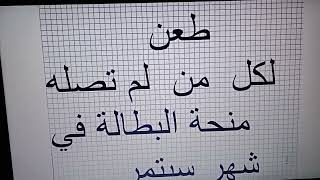 طعن
لكل من لم تصله
منحة البطالة في
شهر سبتمبر